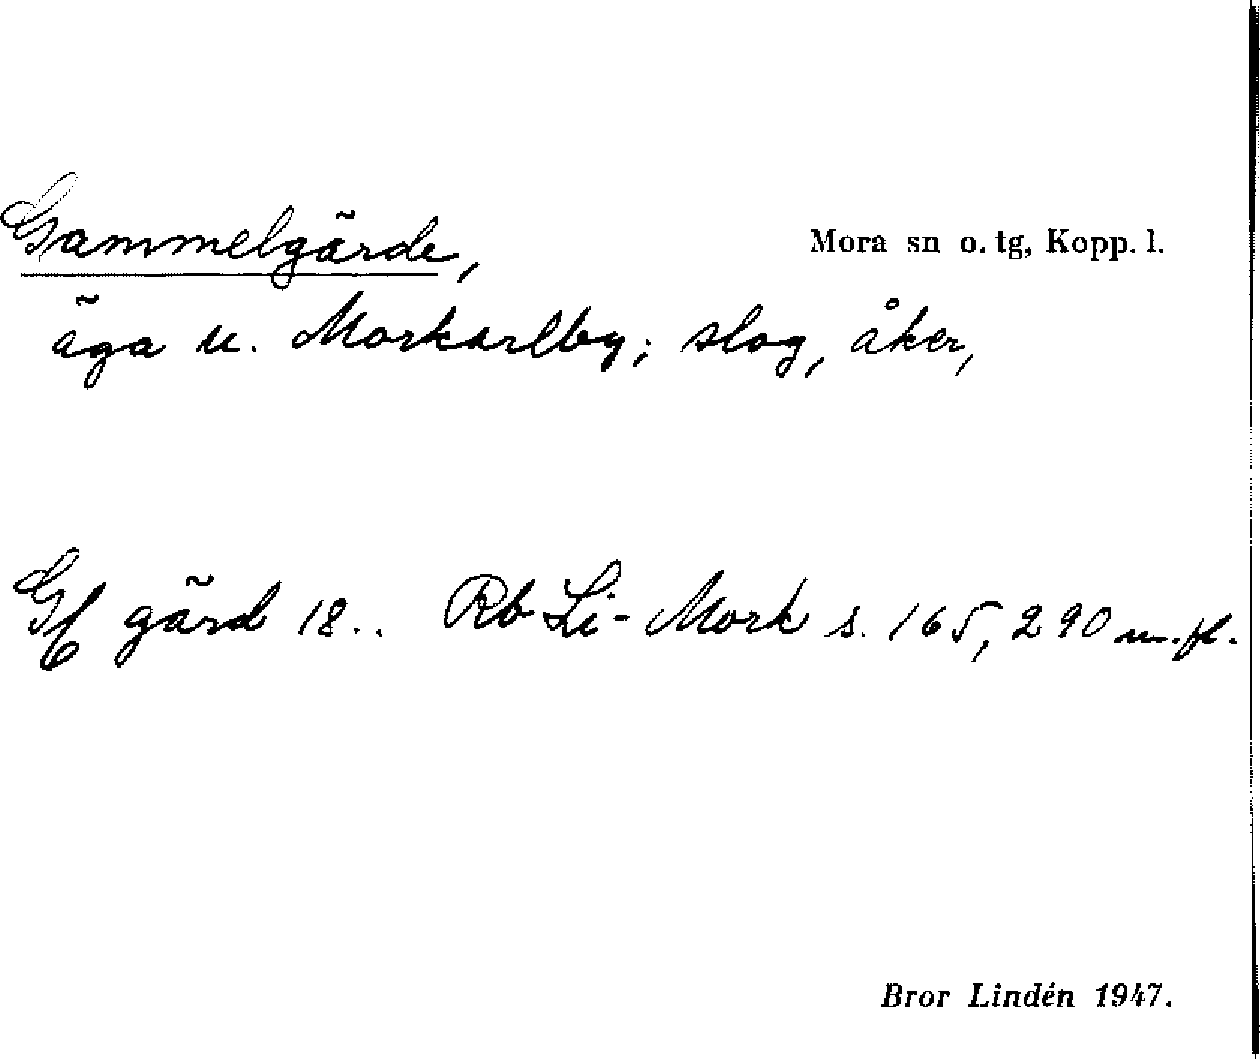 Gammelgärde,
Mora sn o. tg, Kopp. l.
äga u. Morkarlby; slog, åker,
gärd 18.. Rb Li-Mork s. 165, 290 m. fl.
Bror Lindén 1947.